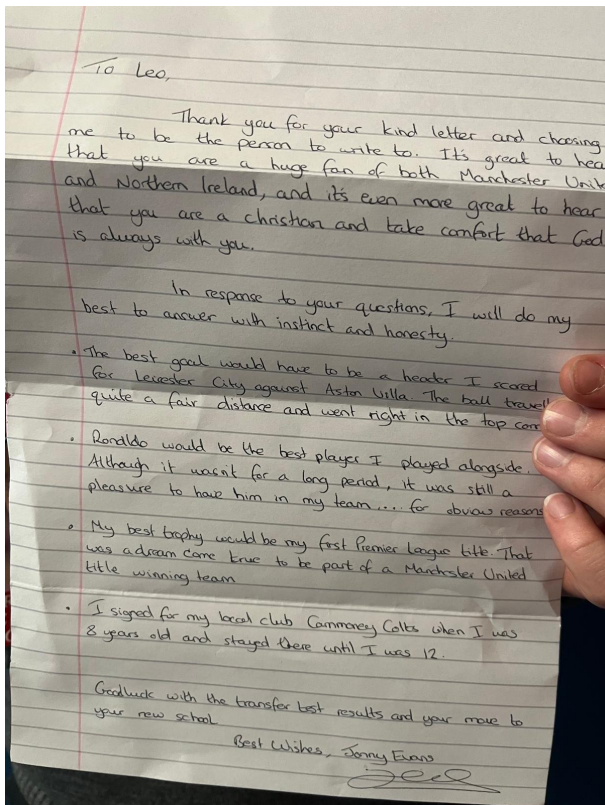 To Leo,
Thank you for your kind letter and choosing
me to be the person to write to. It's great to hea
that you are a huge fan of both Manchester Unite
and Northern Ireland, and it's even more great to hear
that you are a christian and take comfort that God
is always with you.
In response to your questions, I will do my
best to answer with instinct and honesty.
• The best goal would have to be a header I scored
for Leicester City against Aston Villa. The ball travell
quite a fair distance and went right in the top corn
• Ronaldo would be the best player I played alongside.
Although it wasn't for a long period, it was still a
pleasure to have him in my team.... for obviou reasons
• My best trophy would be my first Premier League title. That
was a dream come true to be part of a Manchester United
title winning team
• I signed for my local club Cammoney Colts when I was
8 years old and stayed there until I was 12.
Goodluck with the transfer test results and your move to
your new school
Best Wishes, Jonny Evans